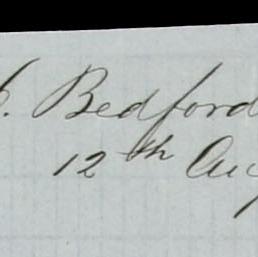 Bedford
12th Aug